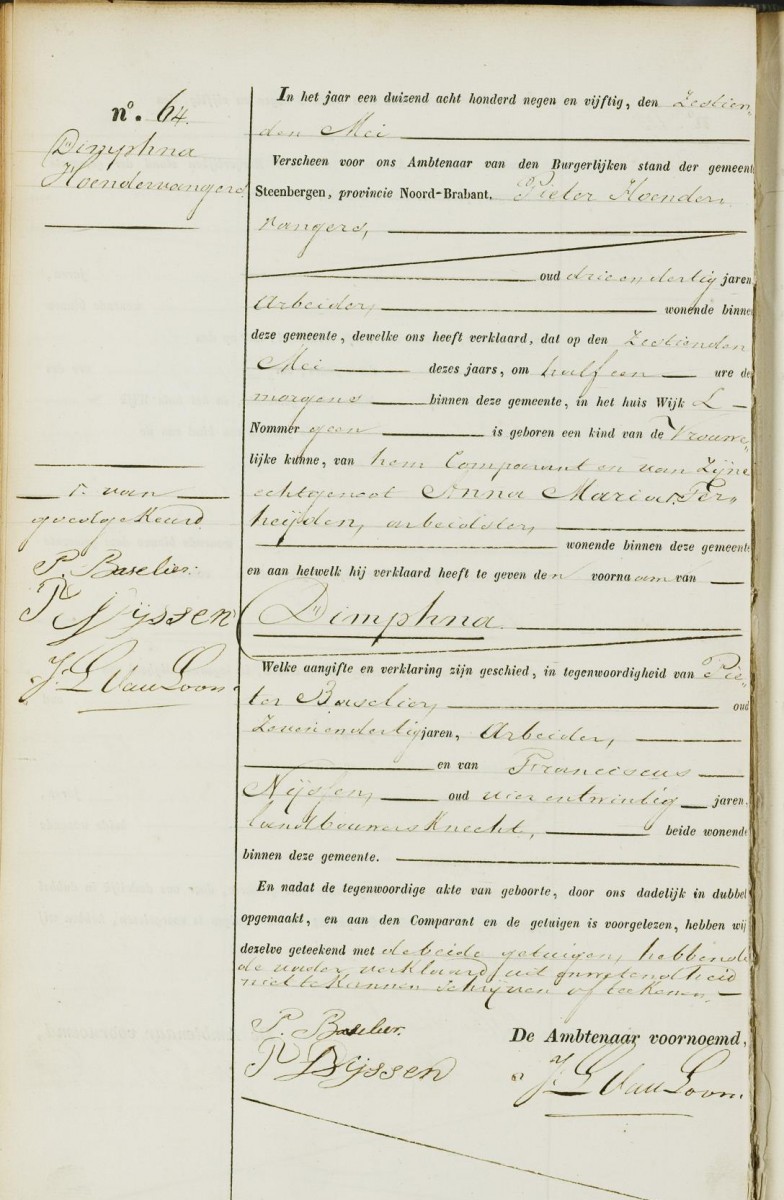 nº. 64.
Dimphna
Hoendervangers
In het jaar een duizend acht honderd negen en vijftig, den Zestien„
den Mei
Verscheen voor ons Ambtenaar van den Burgerlijken stand der gemeente
Steenbergen, provincie Noord-Brabant, Pieter Hoender„
vangers,
oud drieendertig jaren
Arbeider, wonende binnen
deze gemeente, dewelke ons heeft verklaard, dat op den Zestienden
Mei dezes jaars, om half een ure des
morgens binnen deze gemeente, in het huis Wijk L
Nommer geen is geboren een kind van de Vrouwe„
lijke kunne, van hem Comparant en van Zijne
echtgenoot Anna Maria Ver„
heijden, arbeidster,
wonende binnen deze gemeente
en aan hetwelk hij verklaard heeft te geven den voornaam van
Dimphna.
Welke aangifte en verklaring zijn geschied, in tegenwoordigheid van Pie„
ter Baselier, oud
Zevenendertig jaren, Arbeider,
en van Franciscus
Nijssen, oud vierentwintig jaren,
landbouwersknecht, beide wonende
binnen deze gemeente.
En nadat de tegenwoordige akte van geboorte, door ons dadelijk in dubbel
opgemaakt, en aan den Comparant en de getuigen is voorgelezen, hebben wij
dezelve geteekend met de beide getuigen, hebbende
de vader verklaard uit onwetendheid
niet te kunnen schrijven of teekenen.
P. Baselier.
Nijssen
De Ambtenaar voornoemd,
J L Van Loon.
r. van
goedgekeurd
P. Baselier.
Nijssen
J. L Van Loon.